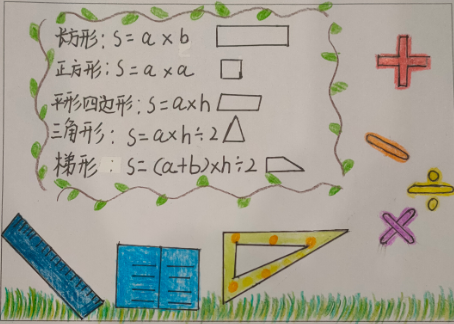 长方形：S=a×b
正方形：S=a×a
平形四边形：S=a×h
三角形：S=a×h÷2
梯形：S=(a+b)×h÷2